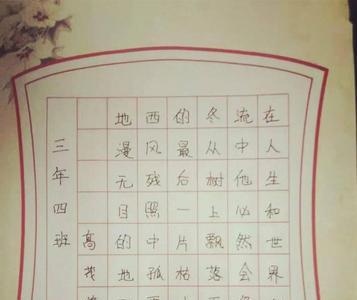 在人生和世界
流中他必然会
冬从树上飘落
的最后一片枯
西风残照中孤
地漫无目的地
高
三年四班